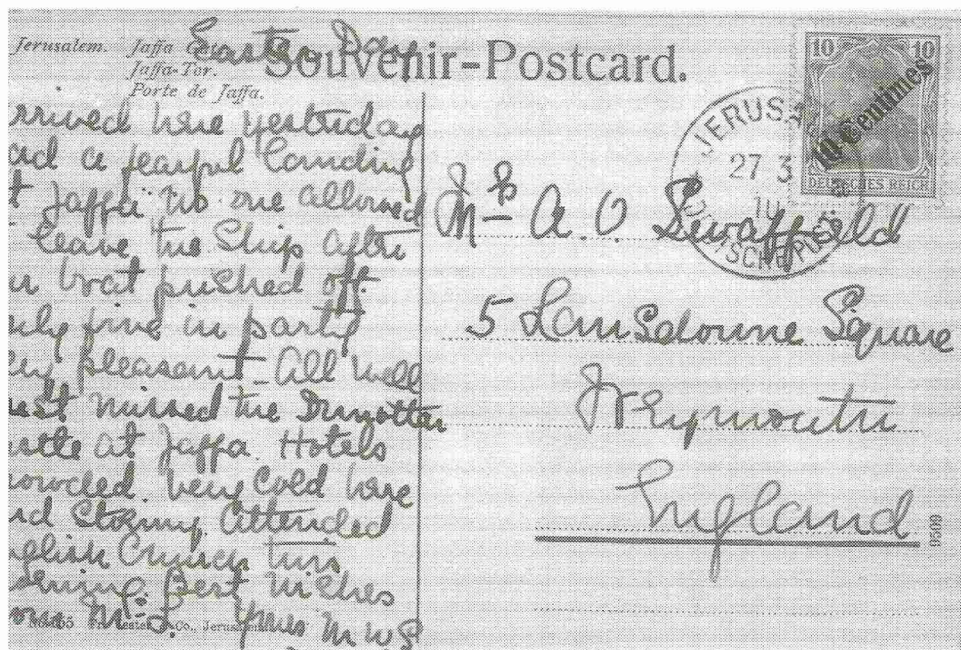 Jerusalem. Jaffa Gate.
Jaffa-Tor.
Porte de Jaffa.
Souvenir-Postcard.
Easter Day
rrived here yesterday
ad a fearful landing
t Jaffa no one allowed
leave the Ship after
ur boat pushed off.
nly five in party
ery pleasant - All well
ust missed the Dunottar
astle at Jaffa. Hotels
rowded. Very Cold here
nd Stormy. Attended
nglish Church this
vening Best Wishes
rom Mrs S. Yours M W S
Co., Jerusalem
10 10
10 Centimes
DEUTSCHES REICH
JERUSA
27 3
10
DEUTSCHE POST
Mrs A. O.
5 Lansdowne Square
Weymouth
England
9509